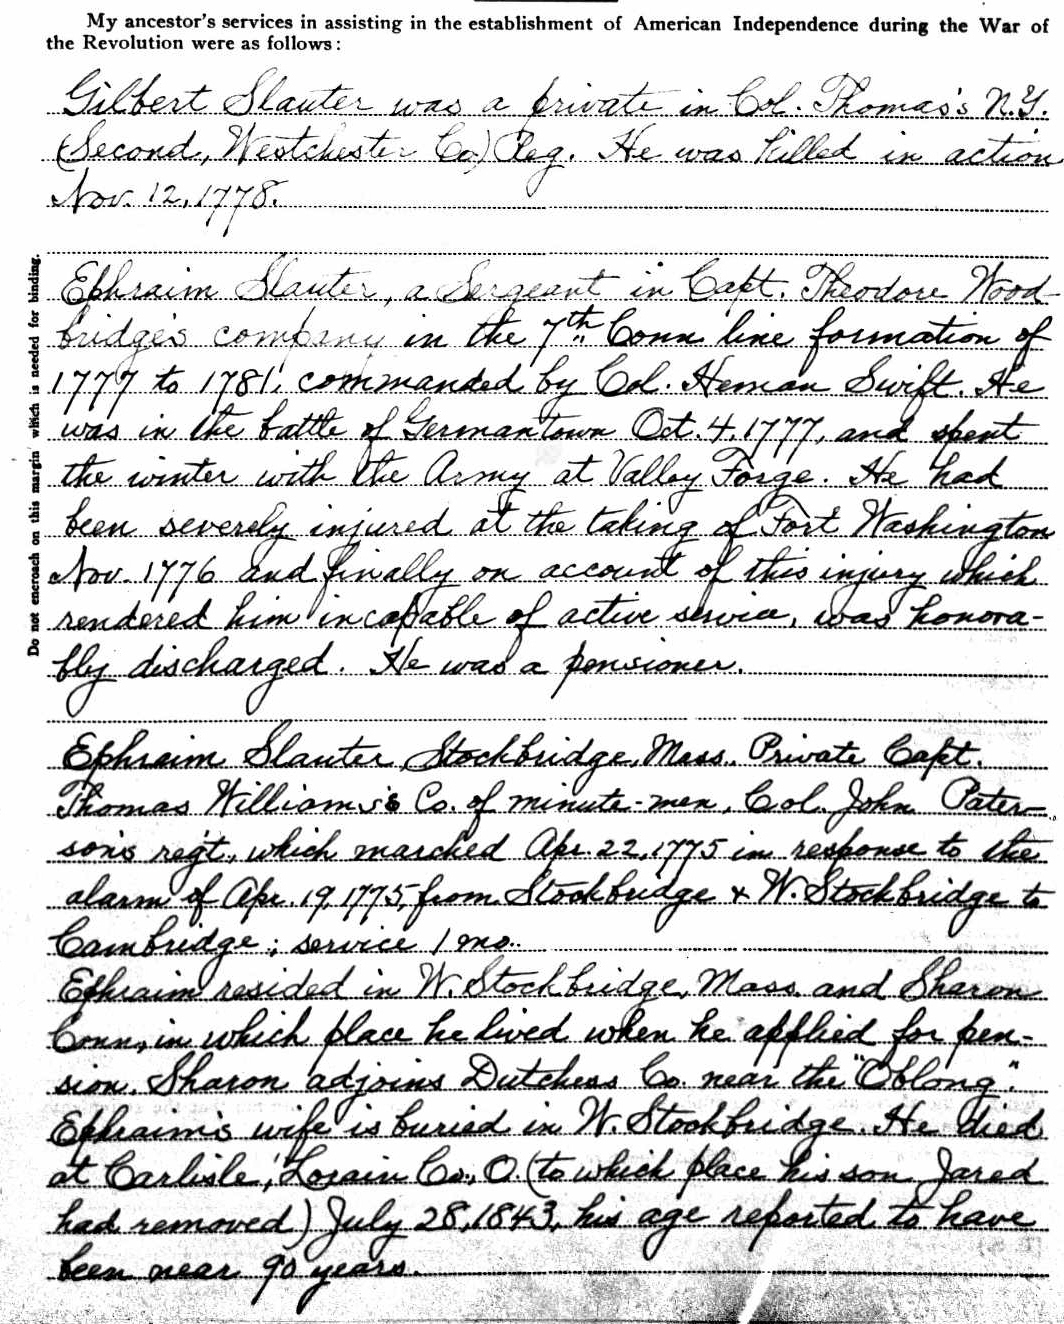 My ancestor's services in assisting in the establishment of American Independence during the War of
the Revolution were as follows:
Gilbert Slauter was a private in Col. Thomas's N.Y.
(Second, Westchester Co.) Reg. He was killed in action
Nov. 12, 1778.
Do not encroach on this margin which is needed for binding.
Ephraim Slauter, a Sergeant in Capt. Theodore Wood-
bridge's company in the 7th Conn line formation of
1777 to 1781, commanded by Col. Heman Swift. He
was in the battle of Germantown Oct. 4, 1777, and spent
the winter with the Army at Valley Forge. He had
been severely injured at the taking of Fort Washington
Nov. 1776 and finally on account of this injury which
rendered him incapable of active service, was honora-
bly discharged. He was a pensioner.
Ephraim Slauter, Stockbridge, Mass. Private Capt.
Thomas Williams's Co. of minute-men, Col. John Pater-
son's reg't, which marched Apr. 22, 1775 in response to the
alarm of Apr. 19, 1775, from Stockbridge & W. Stockbridge to
Cambridge; service 1 mo.
Ephraim resided in W. Stockbridge, Mass. and Sharon
Conn, in which place he lived when he applied for pen-
sion. Sharon adjoins Dutchess Co. near the "Oblong".
Ephraim's wife is buried in W. Stockbridge. He died
at Carlisle, Lorain Co., O. (to which place his son Jared
had removed) July 28, 1843, his age reported to have
been near 90 years.